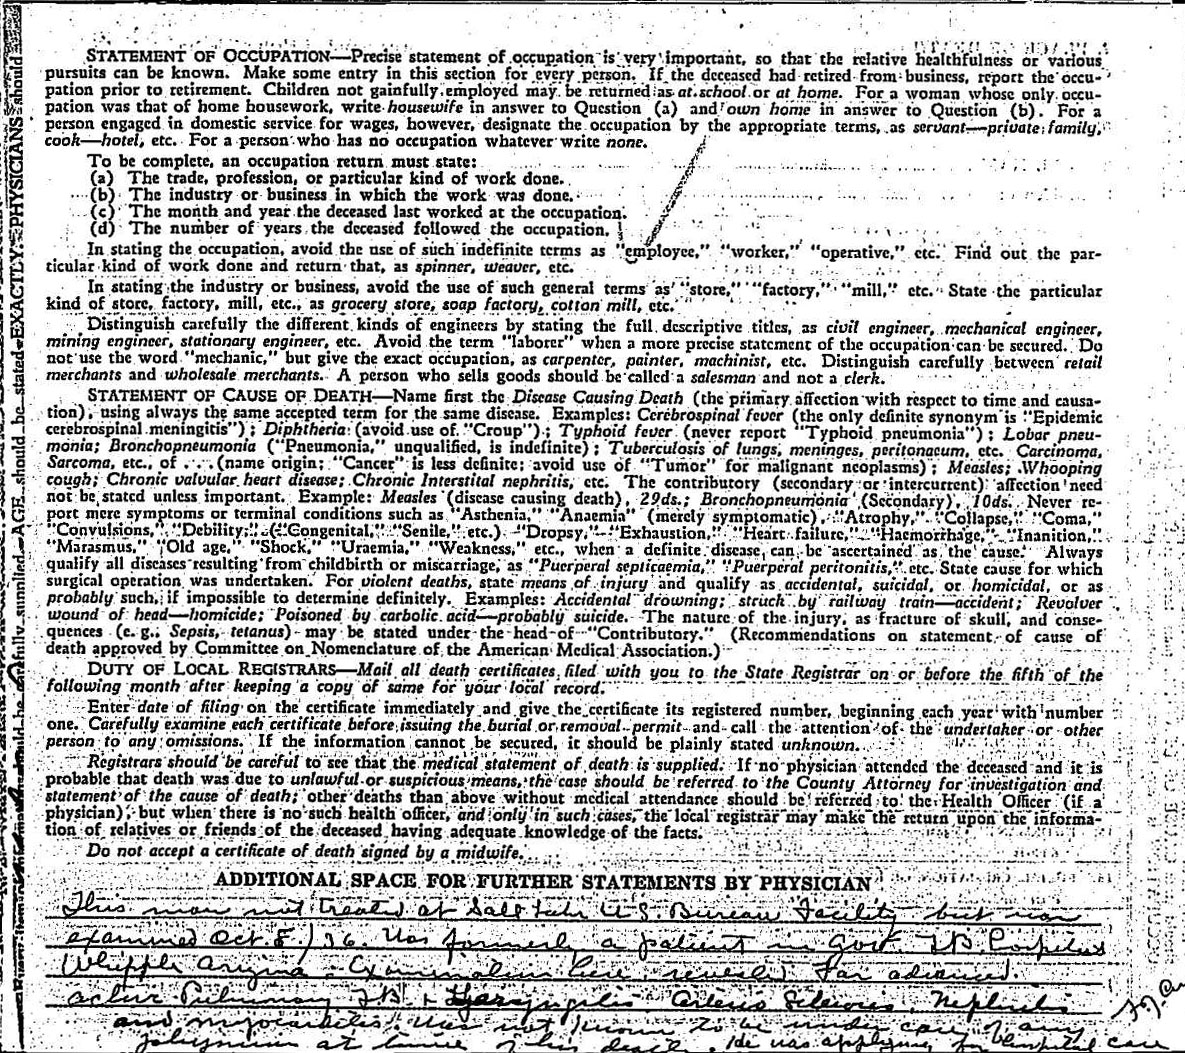 STATEMENT OF OCCUPATION—Precise statement of occupation is very important, so that the relative healthfulness or various
pursuits can be known. Make some entry in this section for every person. If the deceased had retired from business, report the occu-
pation prior to retirement. Children not gainfully employed may be returned as at school or at home. For a woman whose only occu-
pation was that of home housework, write housewife in answer to Question (a) and own home in answer to Question (b). For a
person engaged in domestic service for wages, however, designate the occupation by the appropriate terms, as servant—private family,
cook—hotel, etc. For a person who has no occupation whatever write none.
To be complete, an occupation return must state:
(a) The trade, profession, or particular kind of work done.
(b) The industry or business in which the work was done.
(c) The month and year the deceased last worked at the occupation.
(d) The number of years the deceased followed the occupation.
In stating the occupation, avoid the use of such indefinite terms as "employee," "worker," "operative," etc. Find out the par-
ticular kind of work done and return that, as spinner, weaver, etc.
In stating the industry or business, avoid the use of such general terms as "store," "factory," "mill," etc. State the particular
kind of store, factory, mill, etc., as grocery store, soap factory, cotton mill, etc.
Distinguish carefully the different kinds of engineers by stating the full descriptive titles, as civil engineer, mechanical engineer,
mining engineer, stationary engineer, etc. Avoid the term "laborer" when a more precise statement of the occupation can be secured. Do
not use the word "mechanic," but give the exact occupation, as carpenter, painter, machinist, etc. Distinguish carefully between retail
merchants and wholesale merchants. A person who sells goods should be called a salesman and not a clerk.
STATEMENT OF CAUSE OF DEATH—Name first the Disease Causing Death (the primary affection with respect to time and causa-
tion), using always the same accepted term for the same disease. Examples: Cerebrospinal fever (the only definite synonym is "Epidemic
cerebrospinal meningitis"); Diphtheria (avoid use of "Croup"); Typhoid fever (never report "Typhoid pneumonia"); Lobar pneu-
monia; Bronchopneumonia ("Pneumonia," unqualified, is indefinite); Tuberculosis of lungs, meninges, peritonaeum, etc. Carcinoma,
Sarcoma, etc., of . . . (name origin; "Cancer" is less definite; avoid use of "Tumor" for malignant neoplasms); Measles; Whooping
cough; Chronic valvular heart disease; Chronic Interstital nephritis, etc. The contributory (secondary or intercurrent) affection need
not be stated unless important. Example: Measles (disease causing death), 29ds.; Bronchopneumonia (Secondary), 10ds. Never re-
port mere symptoms or terminal conditions such as "Asthenia," "Anaemia" (merely symptomatic), "Atrophy," "Collapse," "Coma,"
"Convulsions," "Debility," ("Congenital," "Senile," etc.) "Dropsy," "Exhaustion," "Heart failure," "Haemorrhage," "Inanition,"
"Marasmus," "Old age," "Shock," "Uraemia," "Weakness," etc., when a definite disease can be ascertained as the cause. Always
qualify all diseases resulting from childbirth or miscarriage, as "Puerperal septicaemia," "Puerperal peritonitis," etc. State cause for which
surgical operation was undertaken. For violent deaths, state means of injury and qualify as accidental, suicidal, or homicidal, or as
probably such, if impossible to determine definitely. Examples: Accidental drowning; struck by railway train—accident; Revolver
wound of head—homicide; Poisoned by carbolic acid—probably suicide. The nature of the injury, as fracture of skull, and conse-
quences (e. g., Sepsis, tetanus) may be stated under the head of "Contributory." (Recommendations on statement of cause of
death approved by Committee on Nomenclature of the American Medical Association.)
DUTY OF LOCAL REGISTRARS—Mail all death certificates filed with you to the State Registrar on or before the fifth of the
following month after keeping a copy of same for your local record.
Enter date of filing on the certificate immediately and give the certificate its registered number, beginning each year with number
one. Carefully examine each certificate before issuing the burial or removal permit and call the attention of the undertaker or other
person to any omissions. If the information cannot be secured, it should be plainly stated unknown.
Registrars should be careful to see that the medical statement of death is supplied. If no physician attended the deceased and it is
probable that death was due to unlawful or suspicious means, the case should be referred to the County Attorney for investigation and
statement of the cause of death; other deaths than above without medical attendance should be referred to the Health Officer (if a
physician), but when there is no such health officer, and only in such cases, the local registrar may make the return upon the informa-
tion of relatives or friends of the deceased having adequate knowledge of the facts.
Do not accept a certificate of death signed by a midwife.
ADDITIONAL SPACE FOR FURTHER STATEMENTS BY PHYSICIAN
This man not treated at Salt Lake U.S. Bureau Facility but was
examined Oct. 8/36. Was formerly a patient in Govt TB Hospital
Whipple Arizona. Examination here revealed Far advanced
active Pulmonary TB & Laryngitis Arterio Sclerosis, Nephritis
and myocarditis. Was not known to be under care of any
physician at time of his death. He was applying for hospital care
AGE should be stated EXACTLY. PHYSICIANS should